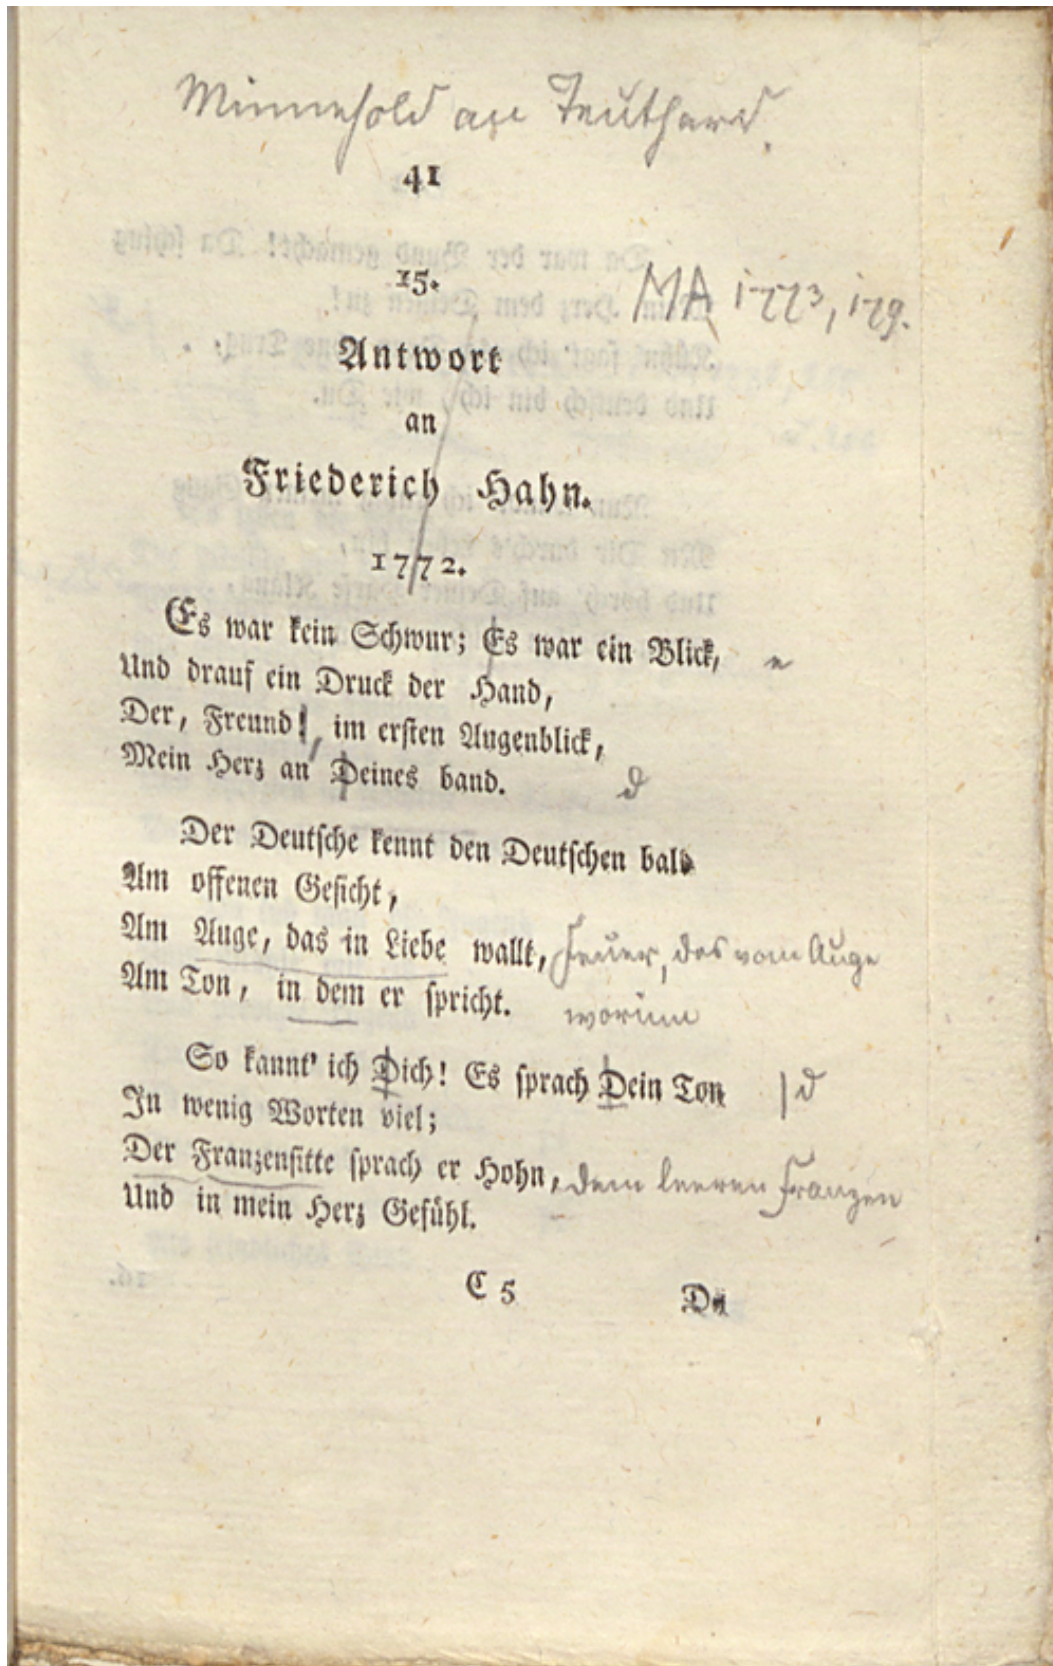 Minnehold an Teuthard.
41
15.
MA 1773, 179.
Antwort
an
Friederich Hahn.
1772.
Es war kein Schwur; Es war ein Blick, e
Und drauf ein Druck der Hand,
Der, Freund! im ersten Augenblick,
Mein Herz an Deines band. d
Der Deutsche kennt den Deutschen bald
Am offenen Gesicht,
Am Auge, das in Liebe wallt, Feuer, das vom Auge
Am Ton, in dem er spricht. worinn
So kannt' ich Dich! Es sprach Dein Ton | d
In wenig Worten viel;
Der Franzensitte sprach er Hohn, dem leeren Franzen
Und in mein Herz Gefühl.
C 5 Du